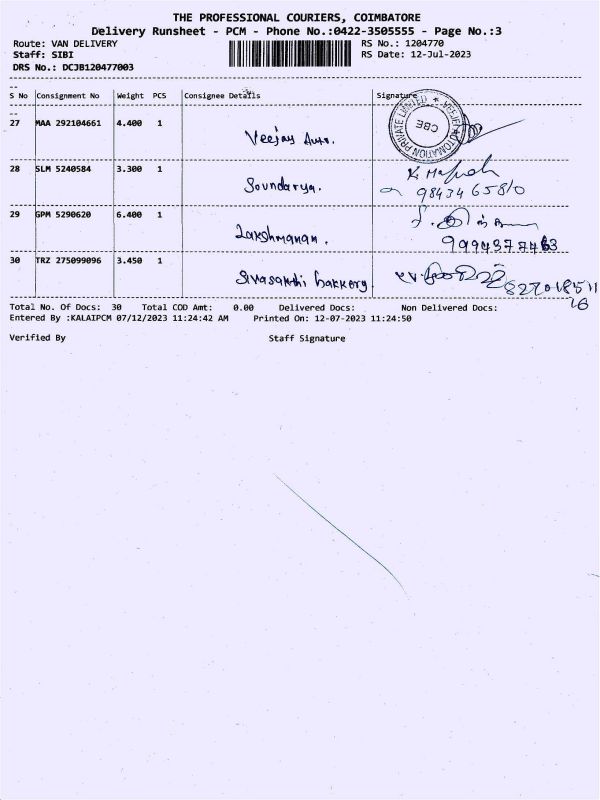 THE PROFESSIONAL COURIERS, COIMBATORE
Delivery Runsheet - PCM - Phone No.:0422-3505555 - Page No.:3
Route: VAN DELIVERY RS No.: 1204770
Staff: SIBI RS Date: 12-Jul-2023
DRS No.: DCJB120477003
S No Consignment No Weight PCS Consignee Details Signature
27 MAA 292104661 4.400 1
Veejay Auto.
VEEJEY AUTOMATION PRIVATE LIMITED ★ CBE
28 SLM 5240584 3.300 1
Soundarya. 9843465810
29 GPM 5290620 6.400 1
Lakshmanan.
30 TRZ 275099096 3.450 1
Sivasakthi bakkery
Total No. Of Docs: 30 Total COD Amt: 0.00 Delivered Docs: Non Delivered Docs:
Entered By :KALAIPCM 07/12/2023 11:24:42 AM Printed On: 12-07-2023 11:24:50
Verified By Staff Signature